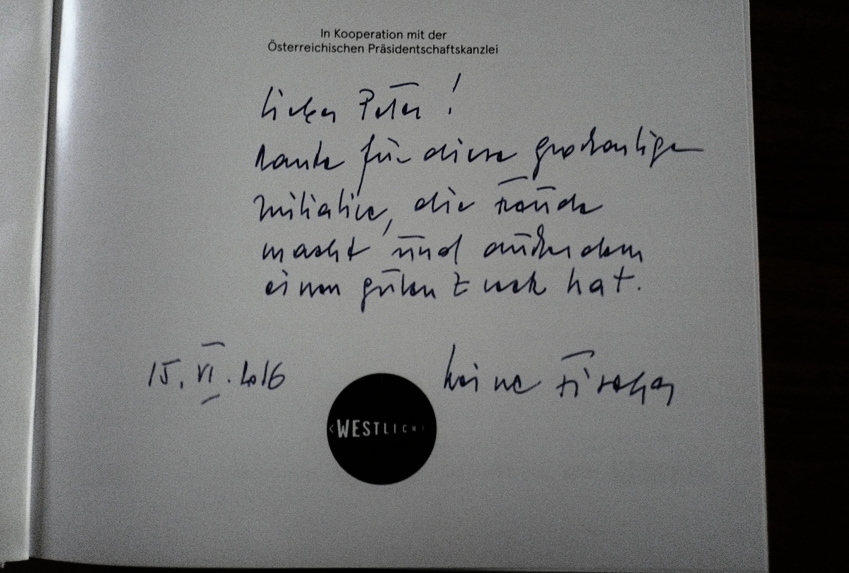 In Kooperation mit der
Österreichischen Präsidentschaftskanzlei
Lieber Peter!
Danke für diese großartige
Initiative, die Freude
macht und außerdem
einen guten Zweck hat.
15. VI. 2016
Heinz Fischer
WESTLICHT